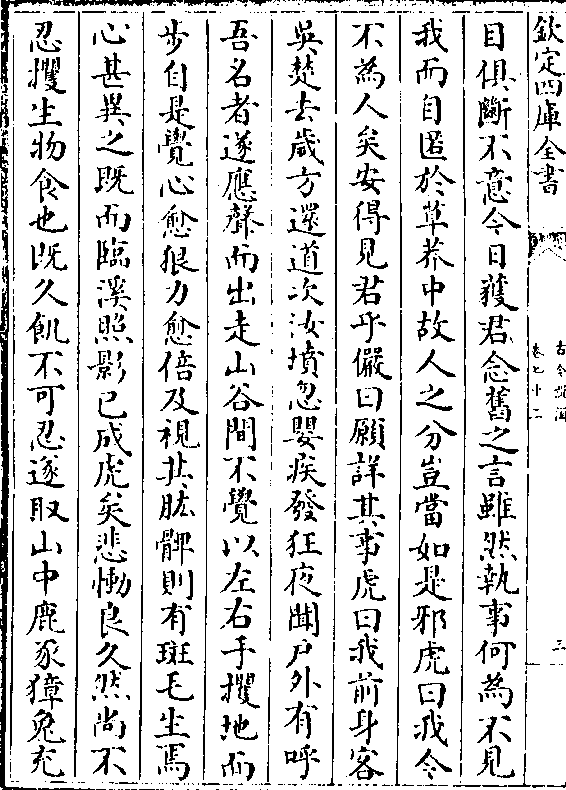 欽定四庫全書
古今說海
卷七十二
三
目俱斷不意今日獲君念舊之言雖然執事何為不見
我而自匿於草莽中故人之分豈當如是邪虎曰我今
不為人矣安得見君乎儼曰願詳其事虎曰我前身客
吳楚去歲方還道次汝墳忽嬰疾發狂夜聞戶外有呼
吾名者遂應聲而出走山谷間不覺以左右手攫地而
步自是覺心愈狠力愈倍及視其肱髀則有斑毛生焉
心甚異之既而臨溪照影已成虎矣悲慟良久然尚不
忍攫生物食也既久飢不可忍遂取山中鹿豕獐兔充